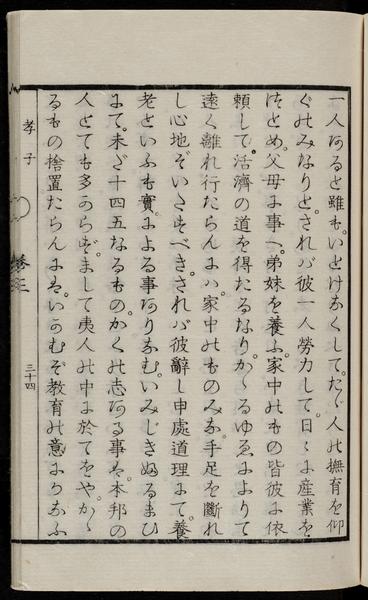 一人あると雖も。いとけなくして。たゞ人の撫育を仰
ぐのみなりと。されバ彼一人勞力して。日々に産業を
つとめ。父母に事へ。弟妹を養ふ。家中のもの皆彼に依
頼して。活濟の道を得たるなり。かゝるゆゑによりて
遠く離れ行たらんにハ。家中のものみな手足を斷れ
し心地ぞいたすべき。されバ彼辭し申處道理にて。養
老といふも實による事ありなむ。いみじきふるまひ
にて。未だ十四五なるもの。かくの志ある事は。本邦の
人とても多からず。まして夷人の中に於てをや。かゝ
るもの捨置たらんには。いかむぞ教育の意にかなふ
孝子
三十四